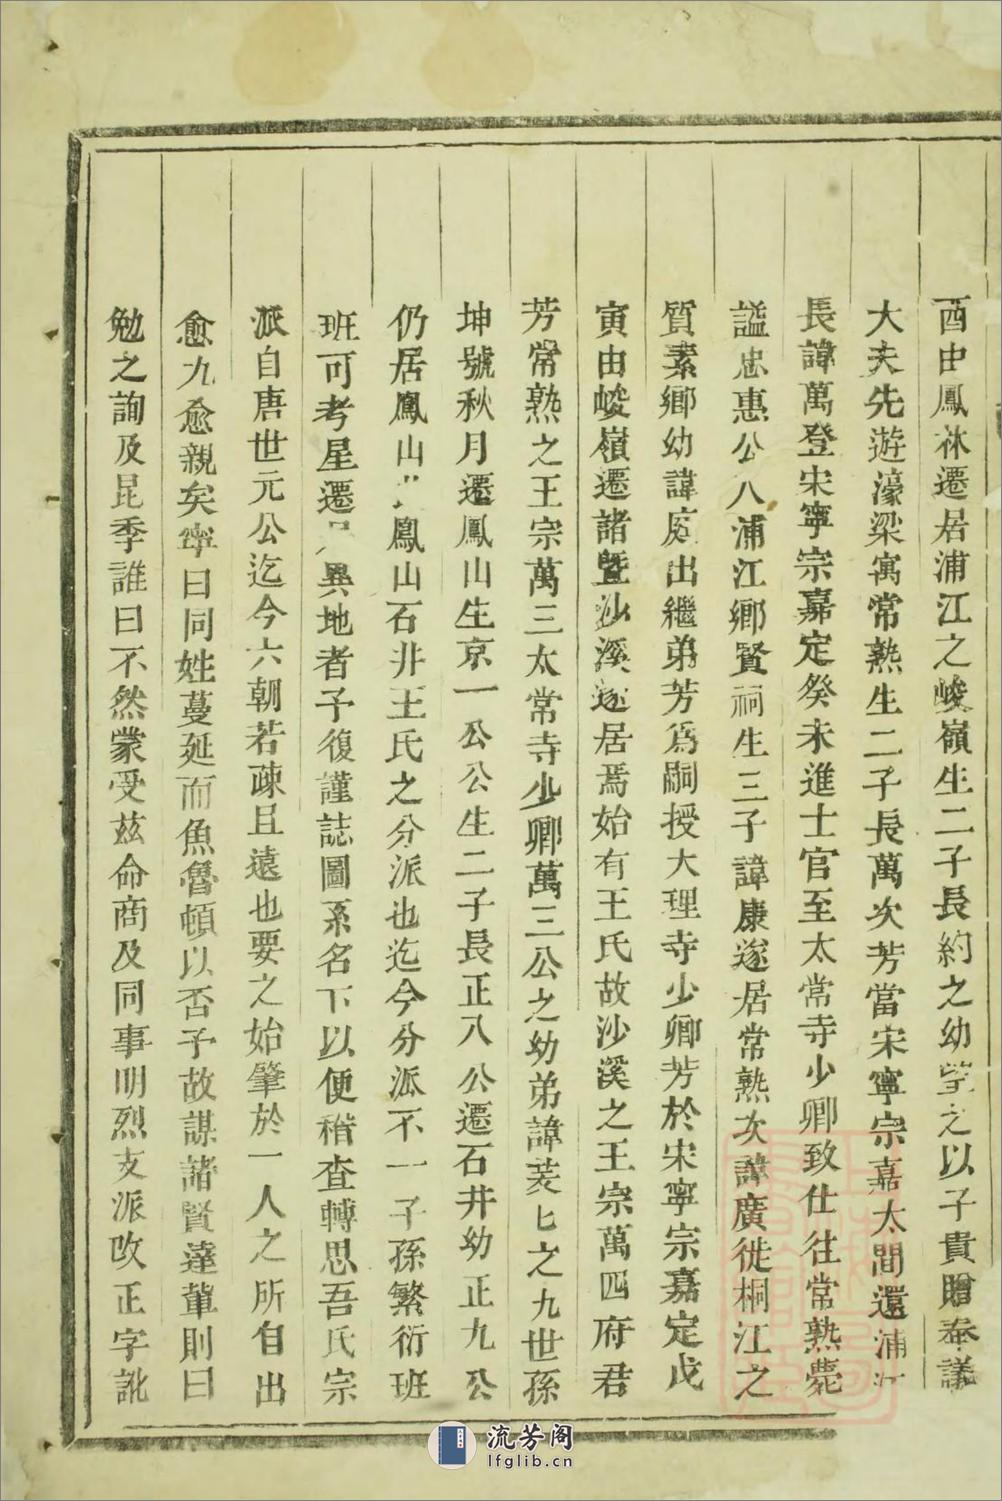 酉由鳳林遷居浦江之峻嶺生二子長約之幼瑩之以子貴贈奉議
大夫先遊濠梁寓常熟生二子長萬次芳當宋寧宗嘉太間還浦江
長諱萬登宋寧宗嘉定癸未進士官至太常寺少卿致仕往常熟薨
謚忠惠公入浦江鄉賢祠生三子諱康遂居常熟次諱廣徙桐江之
質素鄉幼諱庭出繼弟芳爲嗣授大理寺少卿芳於宋寧宗嘉定戊
寅由峻嶺遷諸暨沙溪遂居焉始有王氏故沙溪之王宗萬四府君
芳常熟之王宗萬三太常寺少卿萬三公之幼弟諱芳七之九世孫
坤號秋月遷鳳山生京一公公生二子長正八公遷石井幼正九公
仍居鳳山鳳山石井王氏之分派也迄今分派不一子孫繁衍班
班可考星遷異地者予復謹誌圖系名下以便稽查轉思吾氏宗
派自唐世元公迄今六朝若疎且遠也要之始肇於一人之所自出
愈九愈親矣寧曰同姓蔓延而魚魯頓以否予故謀諸賢達輩則曰
勉之詢及昆季誰曰不然蒙受玆命商及同事明烈支派改正字訛
流芳阁
lfglib.cn